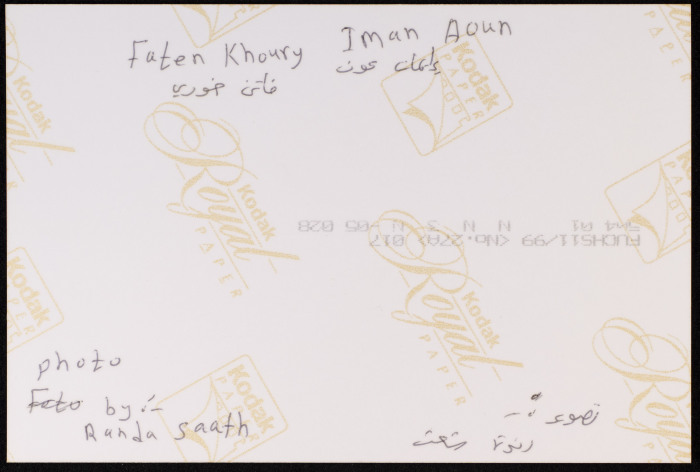 Faten Khoury Iman Aoun
فاتن خوري إيمان عون
FUCHS11/99 <No.27A> 017
N N 3 N-05 028
photo
Foto by :-
Randa Saath
تصوير :-
رندة شعث
Kodak
Royal
PAPER
Kodak
PAPER
Kodak
Royal
PAPER
Kodak
PAPER
Kodak
Royal
PAPER
Kodak
PAPER